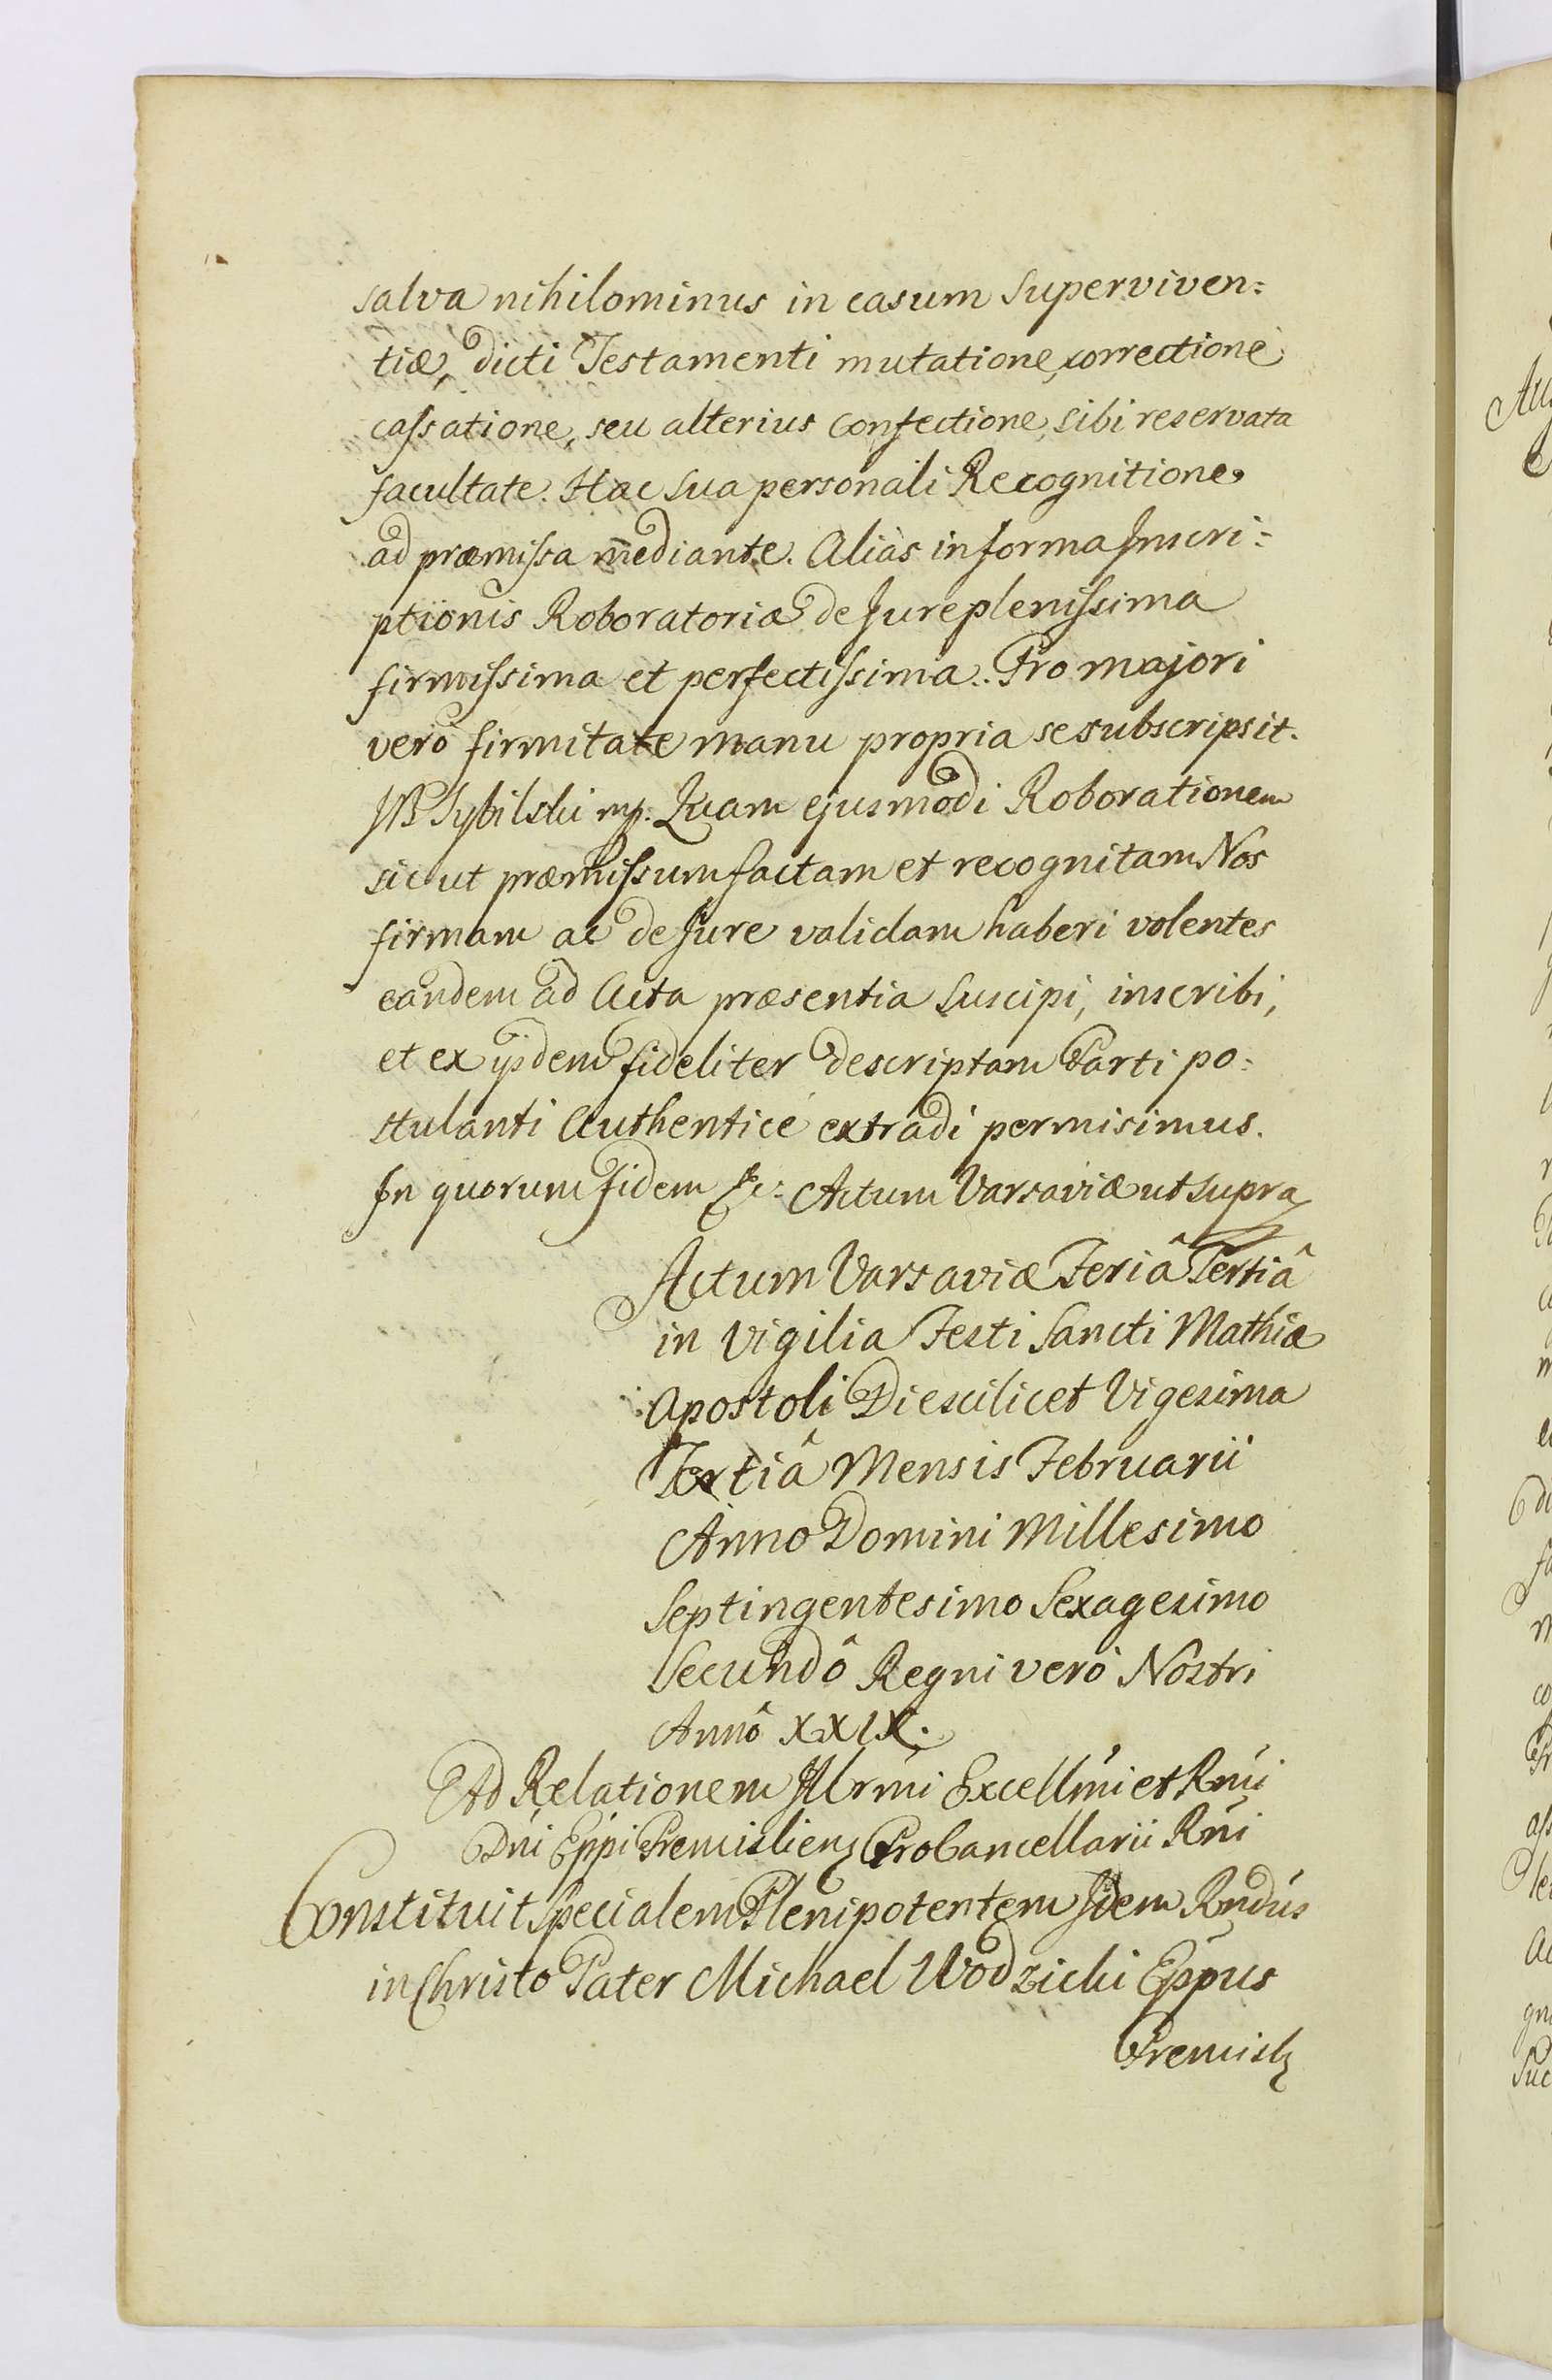 salva nihilominus in casum superviven=
tiæ, dicti Testamenti mutatione, correctione
cassatione, seu alterius confectione, sibi reservata
facultate. Hac sua personali Recognitione
ad præmissa mediante. Alias in forma Inscri=
ptionis Roboratoriæ de Jure plenissima
firmissima et perfectissima. Pro majori
verò firmitate manu propria se subscripsit.
Sybilski mp. Quam ejusmodi Roborationem
sic ut præmissum factam et recognitam Nos
firmam ac de Jure validam haberi volentes
eandem ad Acta præsentia suscipi, inscribi,
et ex ijsdem fideliter descriptam Parti po=
stulanti Authenticè extradi permisimus.
In quorum fidem &c: Actum Varsaviæ ut supra
Actum Varsaviæ Feriâ Tertiâ
in Vigilia Festi Sancti Mathiæ
Apostoli Die scilicet Vigesima
Tertiâ Mensis Februarii
Anno Domini Millesimo
Septingentesimo Sexagesimo
Secundô Regni verò Nostri
Annô XXIX.
Ad Relationem Illrmi Excellmi et Rmi
Dni Eppi Premislien Procancellarii Rni
Constituit Specialem Plenipotentem Idem Rndus
in Christo Pater Michael Wodzicki Eppus
Premisl